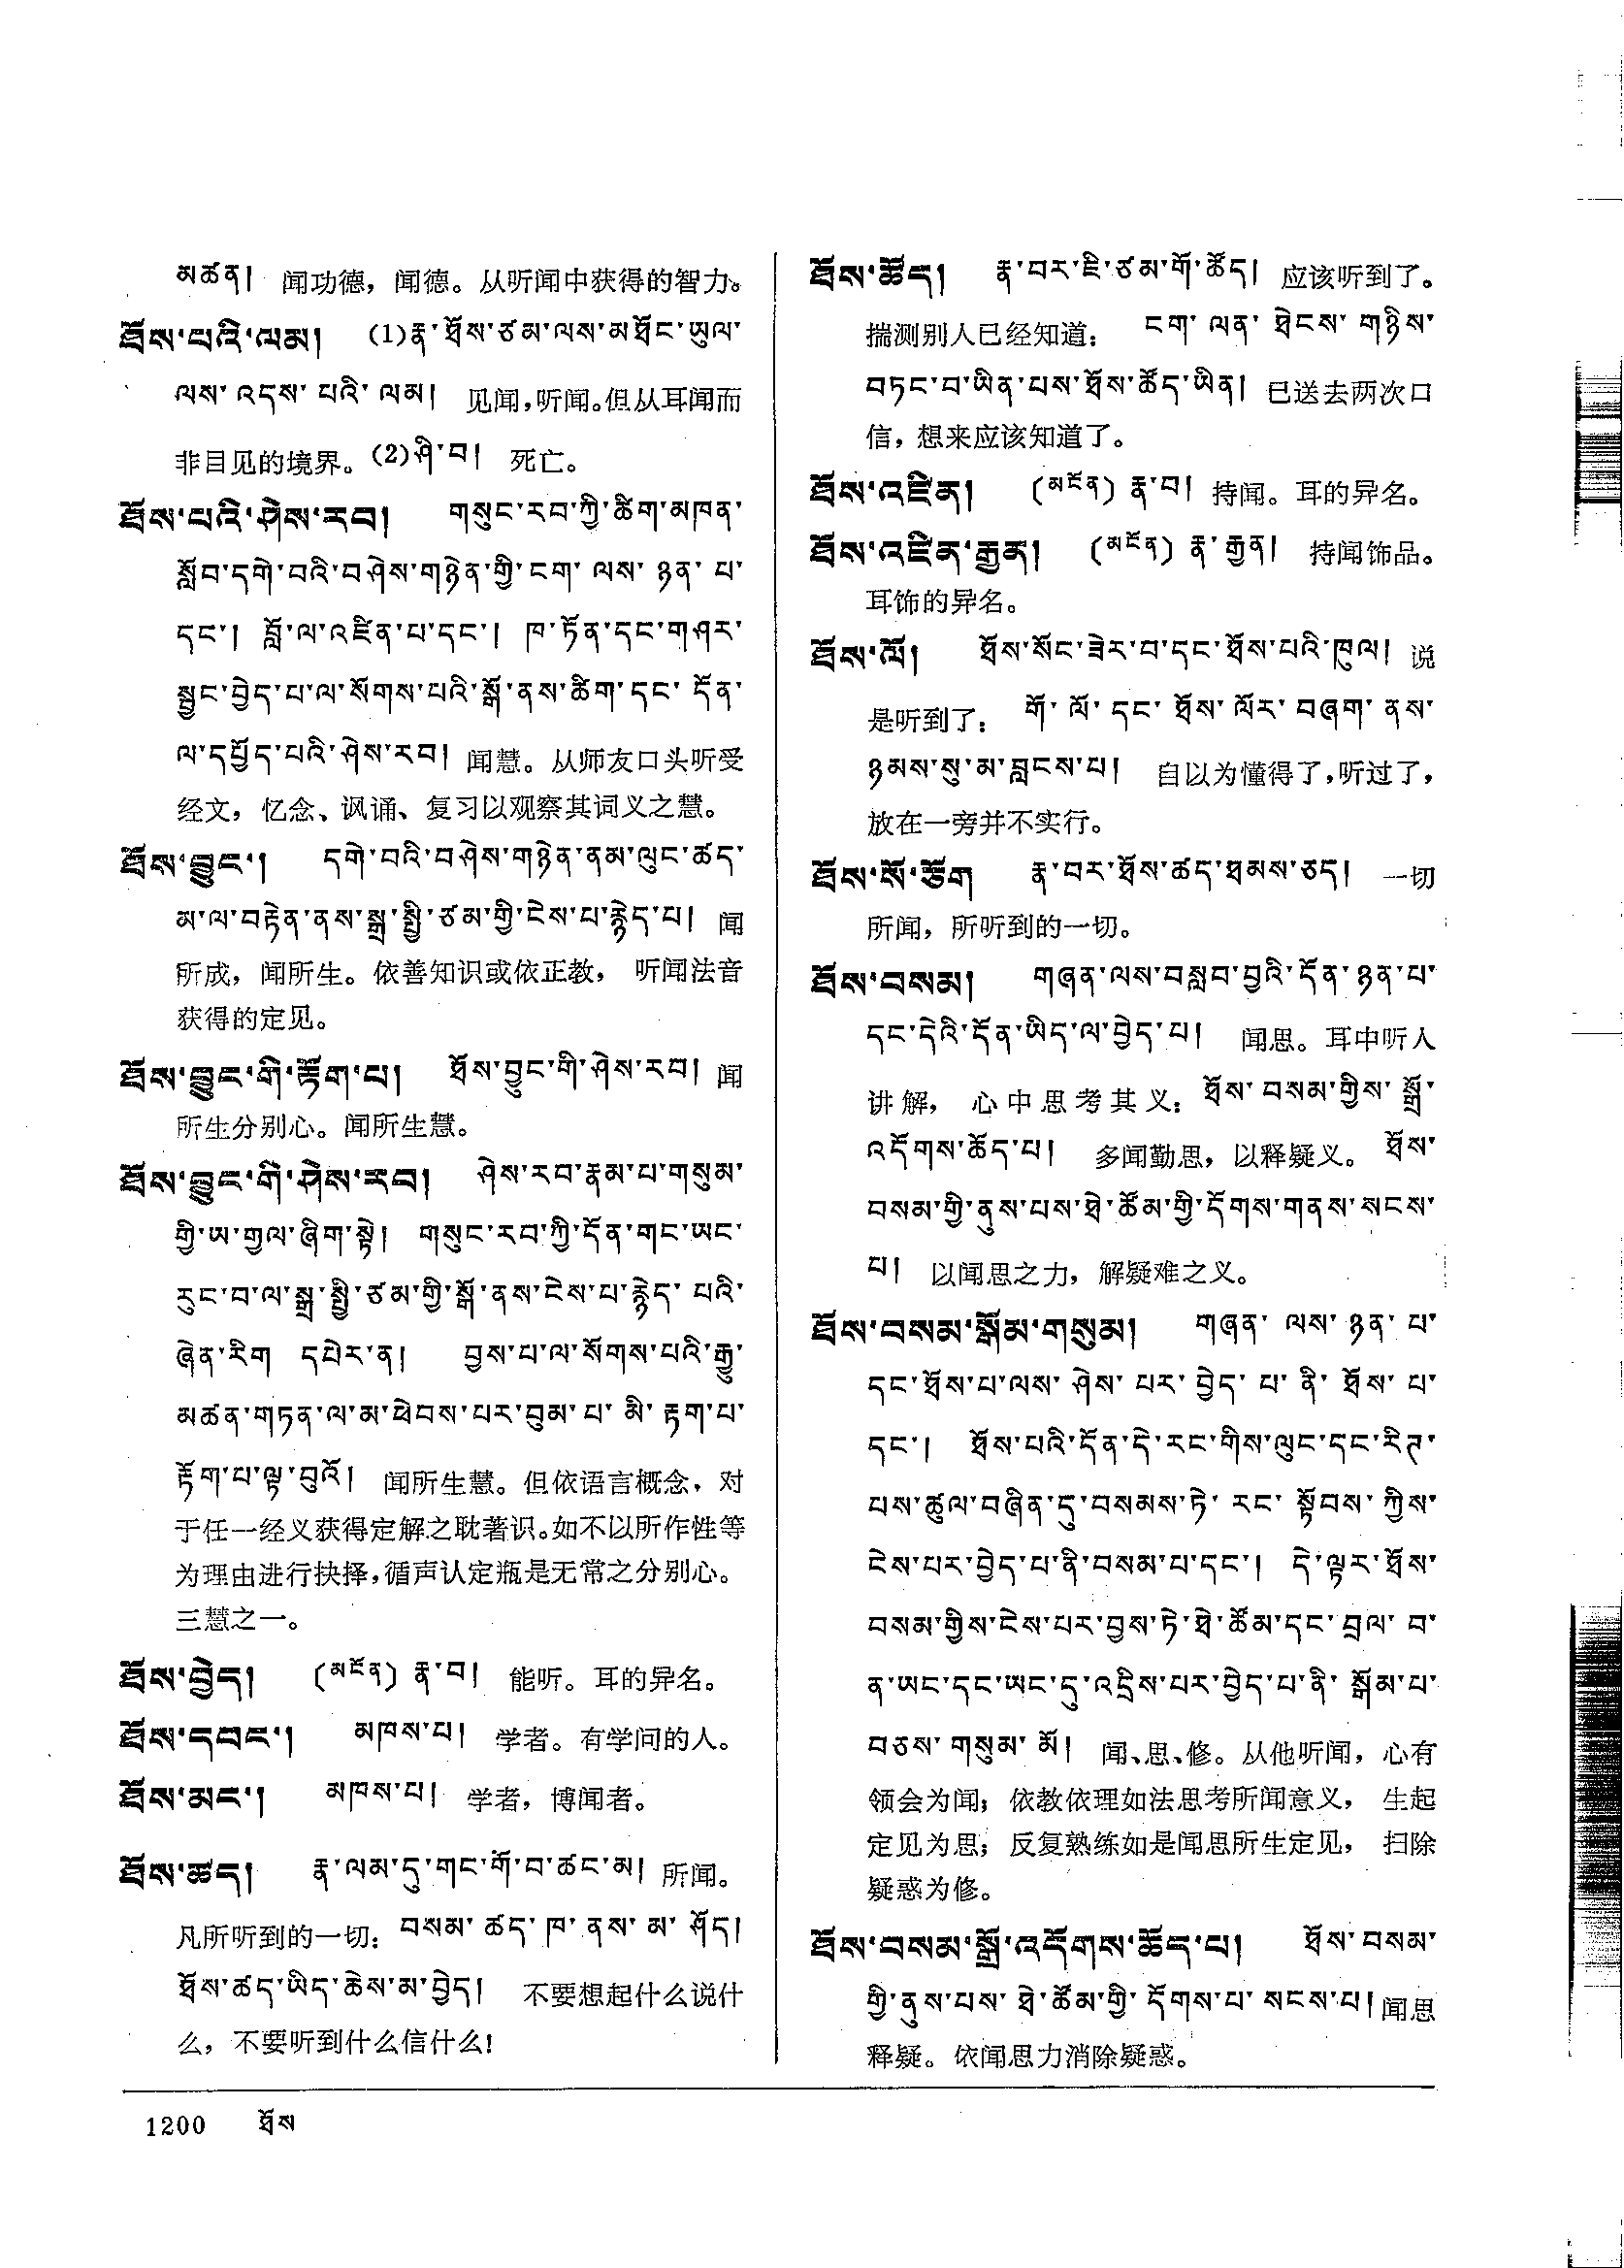 མཚན། 闻功德，闻德。从听闻中获得的智力。
ཐོས་པའི་ལམ། (1)རྣ་ཐོས་ཙམ་ལས་མཐོང་ཡུལ་
ལས་འདས་པའི་ལམ། 见闻，听闻。但从耳闻而
非目见的境界。(2)ཤི་བ། 死亡。
ཐོས་པའི་ཤེས་རབ། གསུང་རབ་ཀྱི་ཚིག་མཁན་
སློབ་དགེ་བའི་བཤེས་གཉེན་གྱི་ངག་ལས་ཉན་པ་
དང་། བློ་ལ་འཛིན་པ་དང་། ཁ་ཏོན་དང་གཤར་
སྦྱང་བྱེད་པ་ལ་སོགས་པའི་སྒོ་ནས་ཚིག་དང་དོན་
ལ་དཔྱོད་པའི་ཤེས་རབ། 闻慧。从师友口头听受
经文，忆念、讽诵、复习以观察其词义之慧。
ཐོས་བྱུང་། དགེ་བའི་བཤེས་གཉེན་ནམ་ལུང་ཚད་
མ་ལ་བརྟེན་ནས་སྒྲ་སྤྱི་ཙམ་གྱི་ངེས་པ་རྙེད་པ། 闻
所成，闻所生。依善知识或依正教， 听闻法音
获得的定见。
ཐོས་བྱུང་གི་རྟོག་པ། ཐོས་བྱུང་གི་ཤེས་རབ། 闻
所生分别心。闻所生慧。
ཐོས་བྱུང་གི་ཤེས་རབ། ཤེས་རབ་རྣམ་པ་གསུམ་
གྱི་ཨ་གྱལ་ཞིག་སྟེ། གསུང་རབ་ཀྱི་དོན་གང་ཡང་
རུང་བ་ལ་སྒྲ་སྤྱི་ཙམ་གྱི་སྒོ་ནས་ངེས་པ་རྙེད་པའི་
ཞེན་རིག དཔེར་ན། བྱས་པ་ལ་སོགས་པའི་རྒྱུ་
མཚན་གཏན་ལ་མ་ཕེབས་པར་བུམ་པ་མི་རྟག་པ་
རྟོག་པ་ལྟ་བུའོ། 闻所生慧。但依语言概念，对
于任一经义获得定解之耽著识。如不以所作性等
为理由进行抉择，循声认定瓶是无常之分别心。
三慧之一。
ཐོས་བྱེད། (མངོན) རྣ་བ། 能听。耳的异名。
ཐོས་དབང་། མཁས་པ། 学者。有学问的人。
ཐོས་མང་། མཁས་པ། 学者，博闻者。
ཐོས་ཚད། རྣ་ལམ་དུ་གང་གོ་བ་ཚང་མ། 所闻。
凡所听到的一切：བསམ་ཚད་ཁ་ནས་མ་ཤོད།
ཐོས་ཚད་ཡིད་ཆེས་མ་བྱེད། 不要想起什么说什
么，不要听到什么信什么！
ཐོས་ཚོད། རྣ་བར་ཇི་ཙམ་གོ་ཚོད། 应该听到了。
揣测别人已经知道：ངག་ལན་ཐེངས་གཉིས་
བཏང་བ་ཡིན་པས་ཐོས་ཚོད་ཡིན། 已送去两次口
信，想来应该知道了。
ཐོས་འཛིན། (མངོན) རྣ་བ། 持闻。耳的异名。
ཐོས་འཛིན་རྒྱན། (མངོན) རྣ་རྒྱན། 持闻饰品。
耳饰的异名。
ཐོས་ལོ། ཐོས་སོང་ཟེར་བ་དང་ཐོས་པའི་ཁུལ། 说
是听到了：གོ་ལོ་དང་ཐོས་ལོར་བཞག་ནས་
ཉམས་སུ་མ་བླངས་པ། 自以为懂得了，听过了，
放在一旁并不实行。
ཐོས་སོ་ཅོག རྣ་བར་ཐོས་ཚད་ཐམས་ཅད། 一切
所闻，所听到的一切。
ཐོས་བསམ། གཞན་ལས་བསླབ་བྱའི་དོན་ཉན་པ་
དང་དེའི་དོན་ཡིད་ལ་བྱེད་པ། 闻思。耳中听人
讲解， 心中思考其义：ཐོས་བསམ་གྱིས་སྒྲོ་
འདོགས་ཆོད་པ། 多闻勤思，以释疑义。 ཐོས་
བསམ་གྱི་ནུས་པས་ཐེ་ཚོམ་གྱི་དོགས་གནས་སངས་
པ། 以闻思之力，解疑难之义。
ཐོས་བསམ་སྒོམ་གསུམ། གཞན་ལས་ཉན་པ་
དང་ཐོས་པ་ལས་ཤེས་པར་བྱེད་པ་ནི་ཐོས་པ་
དང་། ཐོས་པའི་དོན་དེ་རང་གིས་ལུང་དང་རིག་
པས་ཚུལ་བཞིན་དུ་བསམས་ཏེ་རང་སྟོབས་ཀྱིས་
ངེས་པར་བྱེད་པ་ནི་བསམ་པ་དང་། དེ་ལྟར་ཐོས་
བསམ་གྱིས་ངེས་པར་བྱས་ཏེ་ཐེ་ཚོམ་དང་བྲལ་བ་
ན་ཡང་དང་ཡང་དུ་འདྲིས་པར་བྱེད་པ་ནི་སྒོམ་པ་
བཅས་གསུམ་མོ། 闻、思、修。从他听闻，心有
领会为闻；依教依理如法思考所闻意义， 生起
定见为思；反复熟练如是闻思所生定见， 扫除
疑惑为修。
ཐོས་བསམ་སྒྲོ་འདོགས་ཆོད་པ། ཐོས་བསམ་
གྱི་ནུས་པས་ཐེ་ཚོམ་གྱི་དོགས་པ་སངས་པ། 闻思
释疑。依闻思力消除疑惑。
1200 ཐོས